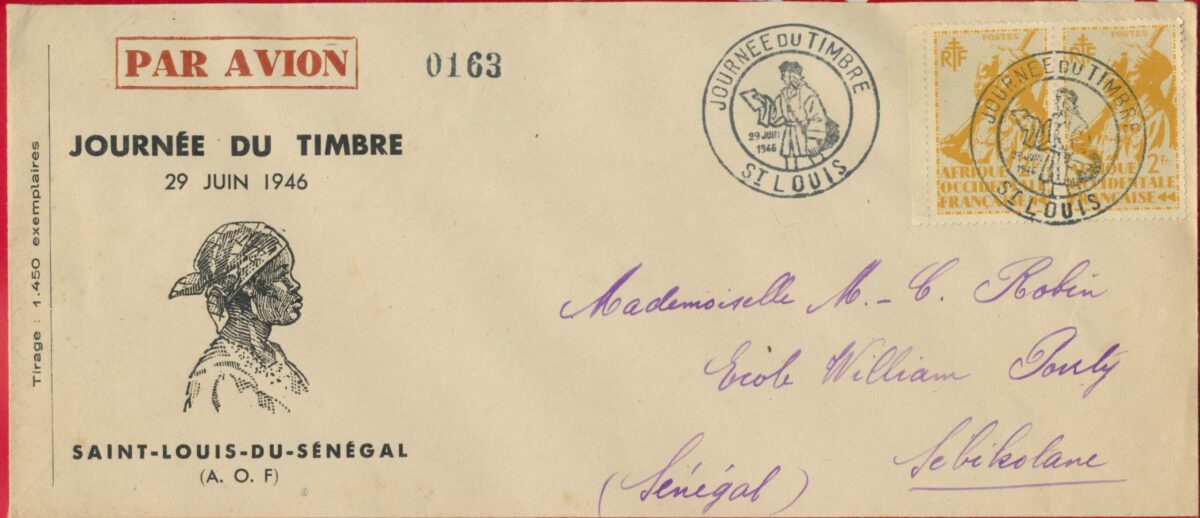 PAR AVION
0163
JOURNÉE DU TIMBRE
29 JUIN 1946
Tirage : 1.450 exemplaires
SAINT-LOUIS-DU-SÉNÉGAL
(A. O. F)
JOURNÉE DU TIMBRE
29 JUIN
1946
ST LOUIS
POSTES
RF
AFRIQUE
OCCIDENTALE
FRANÇAISE
POSTES
RF
2 Fr.
OCCIDENTALE
FRANÇAISE
JOURNÉE DU TIMBRE
29 JUIN
1946
ST LOUIS
Mademoiselle M. - C. Robin
Ecole William Ponty
Sebikotane
(Sénégal)